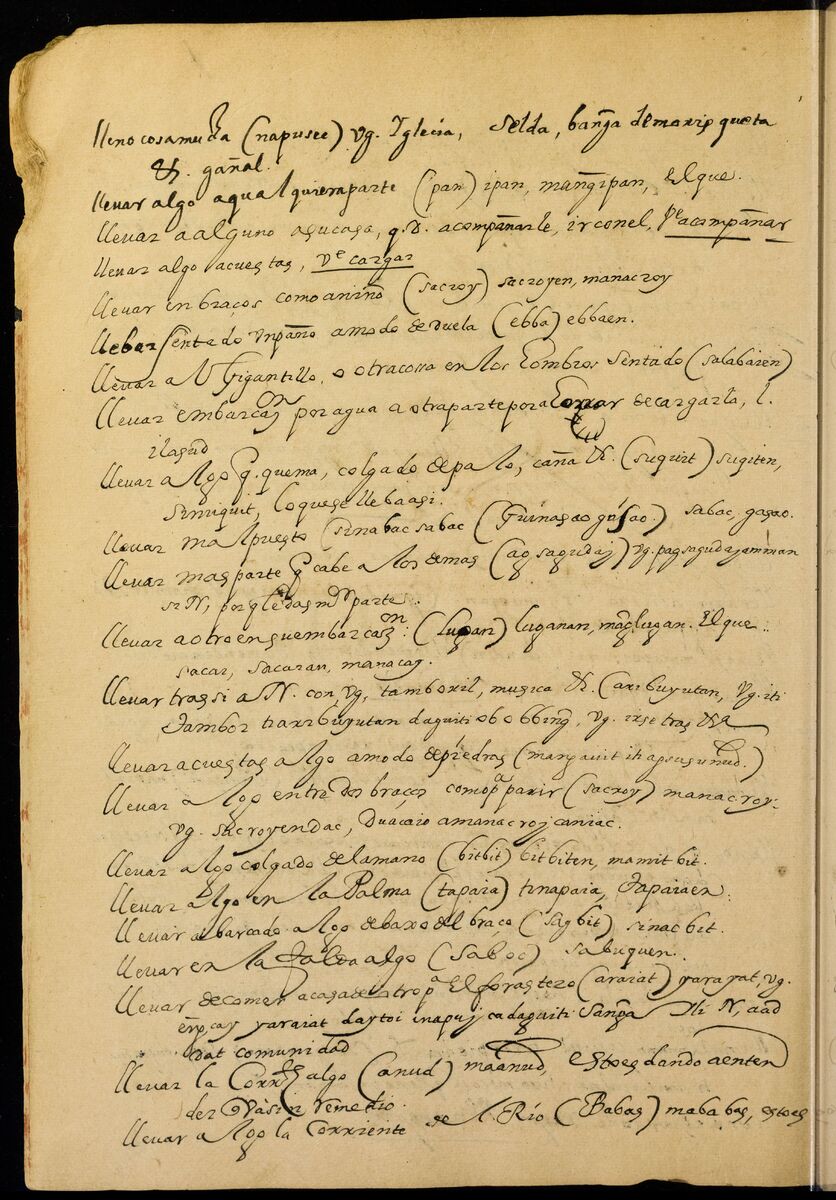 lleno cosa mucha (napusec) vg. Iglecia, selda, banga de marisqueta
&. gañal.
llevar algo a qualquiera parte (pan) ipan, mangipan, El que.
llevar a alguno a su casa, q.d. acompañarle, ir con el, Ve acompañar
llevar algo acuestas, Ve cargar
llevar en braços como a niño (sacroy) sacroyen, manacroy
llebar sentado un paño a modo de (ebba) ebbaen.
llevar a un Gigantillo, o otra cossa en los hombros sentado (salabaien)
llevar embarcaon por agua a otra parte por a horrar de cargarla, l.
ilagud
llevar algo q. quema, colgado de palo, caña &. (suguit) sugiten,
simiquit, lo que se lleba asi.
llevar mal puesto sinabac sabac (Guinasao gasao.) sabac, gasao.
llevar mas parte q cabe a los demas (ag sagudaj) vg. pagsagudajamman
si N, por q le das mr parte.
llevar a otro en su embarcaon: (lugan) luganan, maglugan. El que..
sacai, sacaian, manacay.
llevar tras si a N. con vg, tamboril, musica &. (aribuyutan, vg. iti
tambor ti aribuyutan daguiti obobbing, vg. irse tras &a
llevar acuestas algo a modo de piedras (mangauit iti apsasunud.)
llevar algo entre dos braços como pa parir (sacroy) manacroy
vg. sacroyendac, amanacroj caniac.
llevar algo colgado de la mano (bitbit) bitbiten, mamitbit.
llevar algo en la Palma (tapaia) tinapaia, Tapaiaen.
llevar abarcado algo debaxo del braço (sacbit) sinacbit.
llevar en la falda algo (saboc) sabuquen.
llevar de comer a casa de otro pa El forastero (araiat) yarayat, vg.
yaraiat daytoi inapuj ca daguiti Sanga iti N, aad
dat comunidad
llevar la Corrte algo (anud) maanud, esto es dando a enten
der Va sin remedio.
llevar algo la corriente de el Rio (Babas) mababas, esto es